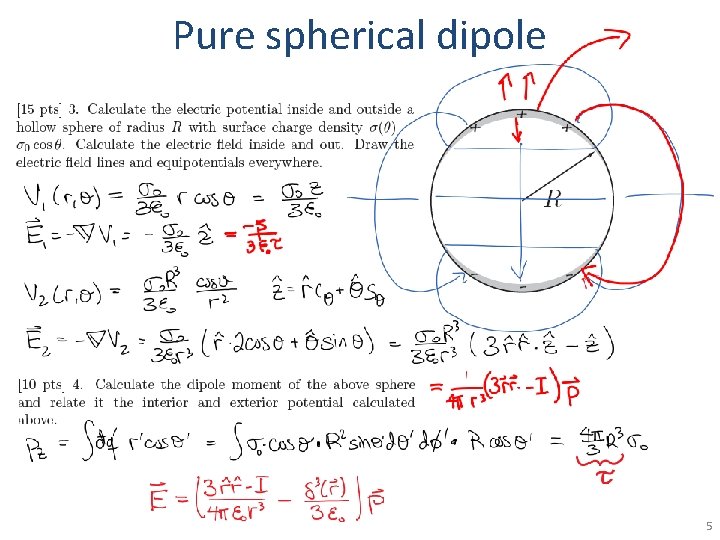 Pure spherical dipole
[15 pts] 3. Calculate the electric potential inside and outside a
hollow sphere of radius R with surface charge density σ(θ)
σ₀ cos θ. Calculate the electric field inside and out. Draw the
electric field lines and equipotentials everywhere.
+ + +
R
- - -
V₁(r,θ) = σ₀/3ε₀ r cosθ = σ₀z/3ε₀
E⃗₁ = -∇V₁ = - σ₀/3ε₀ ẑ =
V₂(r,θ) = σ₀R³/3ε₀ cosθ/r² ẑ = r̂c_θ + θ̂s_θ
E⃗₂ = -∇V₂ = σ₀/3ε₀r³ (r̂·2cosθ + θ̂sinθ) = σ₀R³/3ε₀r³ (3r̂r̂·ẑ - ẑ)
[10 pts] 4. Calculate the dipole moment of the above sphere
and relate it the interior and exterior potential calculated
above.
= 1/4πr³ (3r̂r̂ - I) p⃗
p_z = ∫dq' r'cosθ' = ∫σ₀cosθ'·R²sinθ'dθ'dφ'·R cosθ' = 4π/3 R³σ₀
τ
E⃗ = (3r̂r̂-I/4πε₀r³ - δ³(r⃗)/3ε₀) p⃗
5